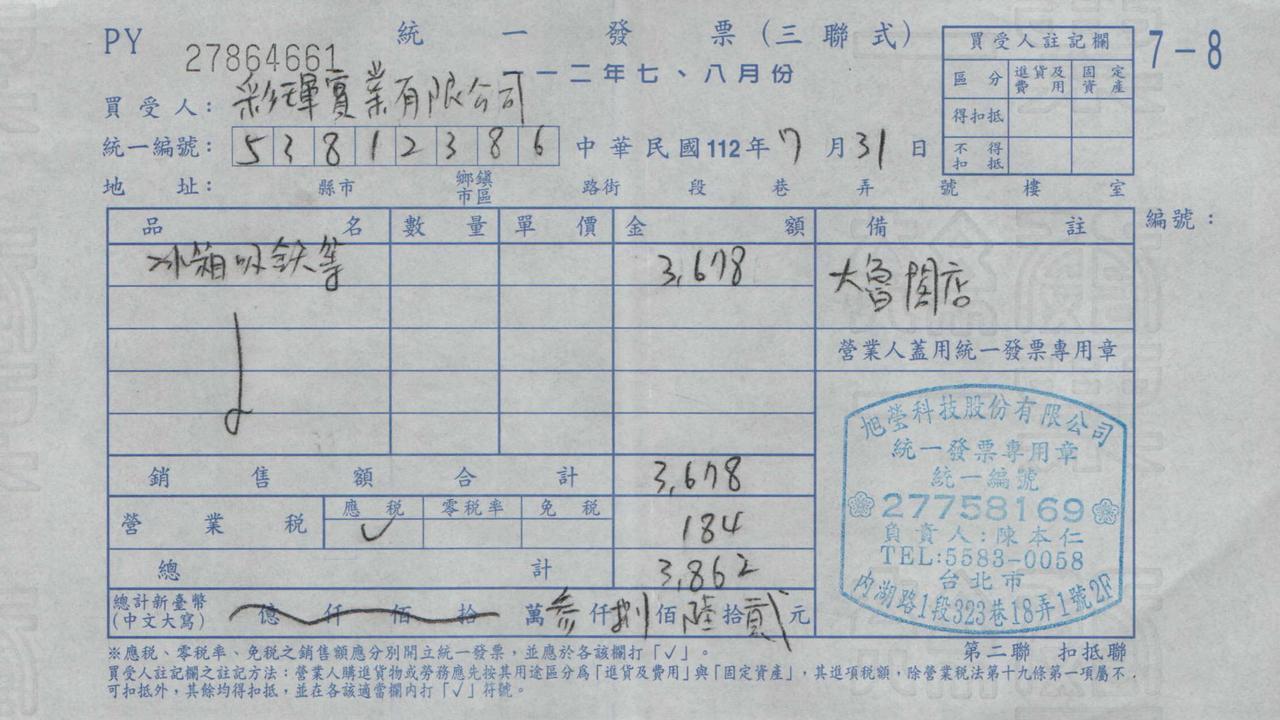 PY 27864661
統一發票(三聯式)
一一二年七、八月份
7-8
買受人註記欄
區分 進貨及費用 固定資產
得扣抵
不得扣抵
買受人: 彩暉實業有限公司
統一編號: 53812386 中華民國112年7月31日
地址: 縣市 鄉鎮市區 路街 段 巷 弄 號 樓 室
編號:
品名 數量 單價 金額 備註
冰箱吸鉄等 3,678 大魯閣店
營業人蓋用統一發票專用章
銷售額合計 3,678
營業稅 應稅 零稅率 免稅 184
✓
總計 3,862
總計新臺幣(中文大寫) 億仟佰拾萬參仟捌佰陸拾貳元
旭瑩科技股份有限公司
統一發票專用章
統一編號
27758169
負責人:陳本仁
TEL:5583-0058
台北市
內湖路1段323巷18弄1號2F
※應稅、零稅率、免稅之銷售額應分別開立統一發票,並應於各該欄打「✓」。
第二聯 扣抵聯
買受人註記欄之註記方法:營業人購進貨物或勞務應先按其用途區分為「進貨及費用」與「固定資產」,其進項稅額,除營業稅法第十九條第一項屬不
可扣抵外,其餘均得扣抵,並在各該適當欄內打「✓」符號。